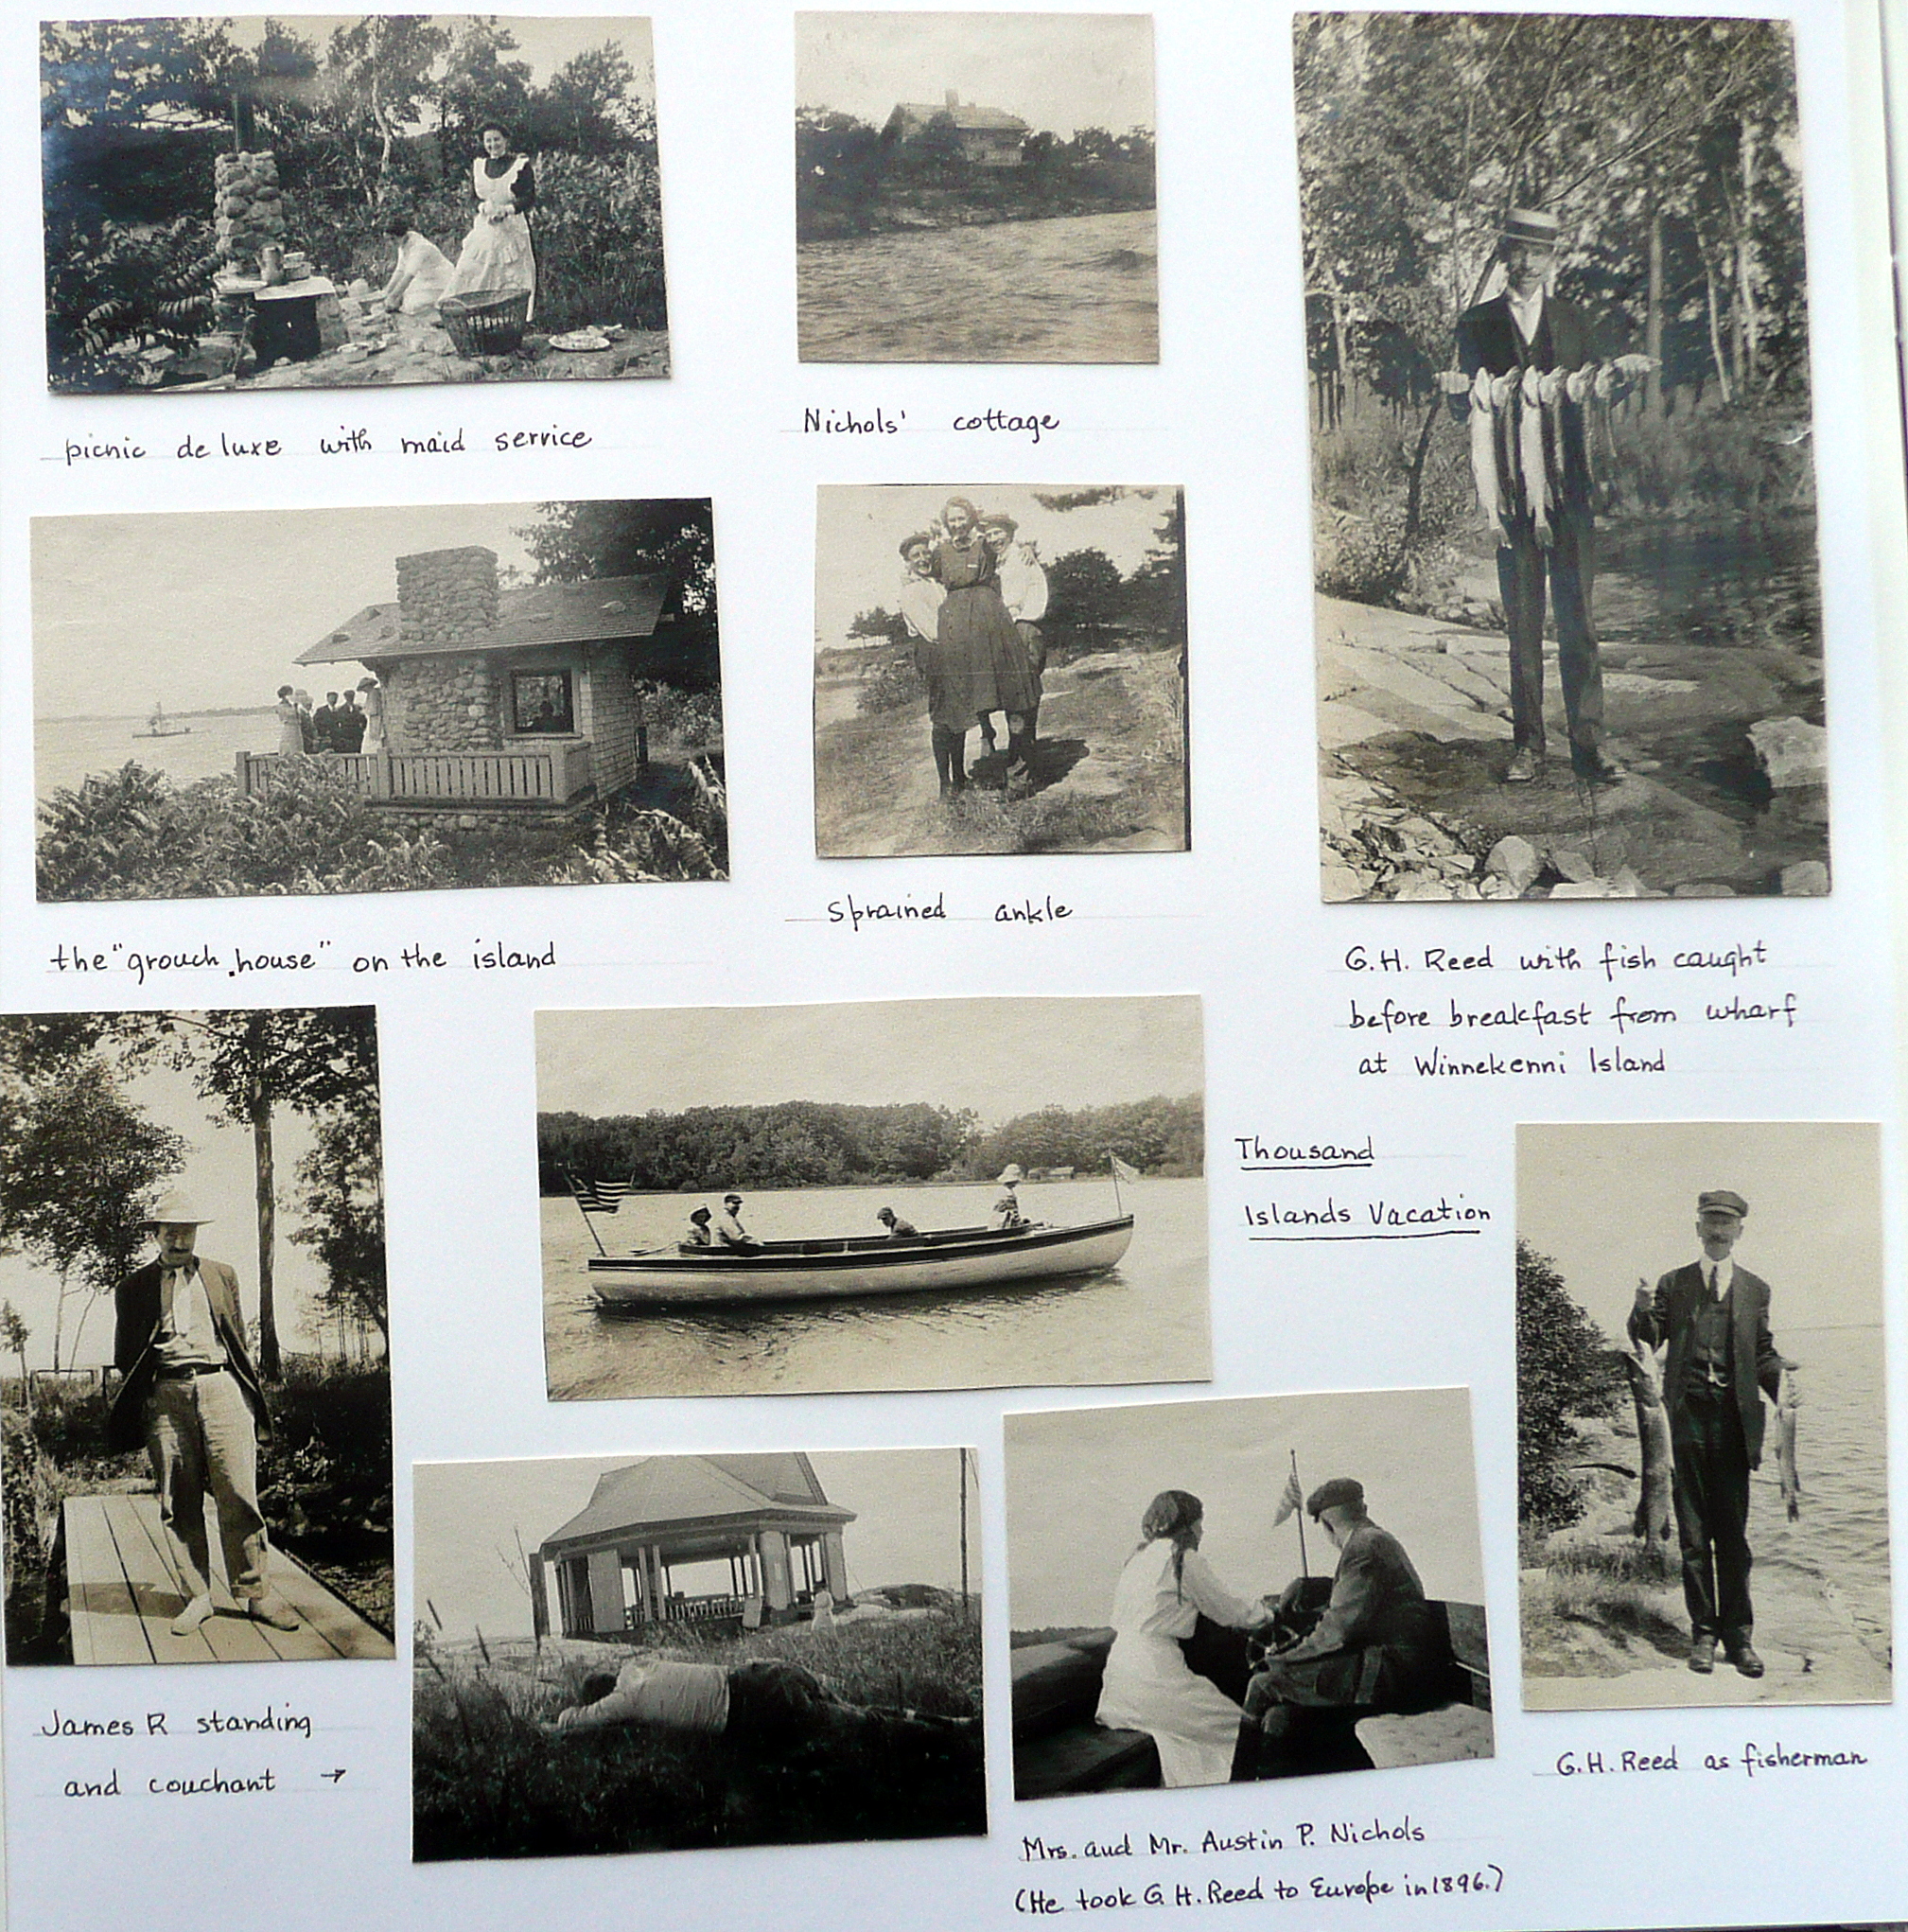 picnic de luxe with maid service
Nichols' cottage
the "grouch house" on the island
Sprained ankle
G.H. Reed with fish caught
before breakfast from wharf
at Winnekenni Island
Thousand
Islands Vacation
James R standing
and couchant →
Mrs. and Mr. Austin P. Nichols
(He took G.H. Reed to Europe in 1896.)
G.H. Reed as fisherman